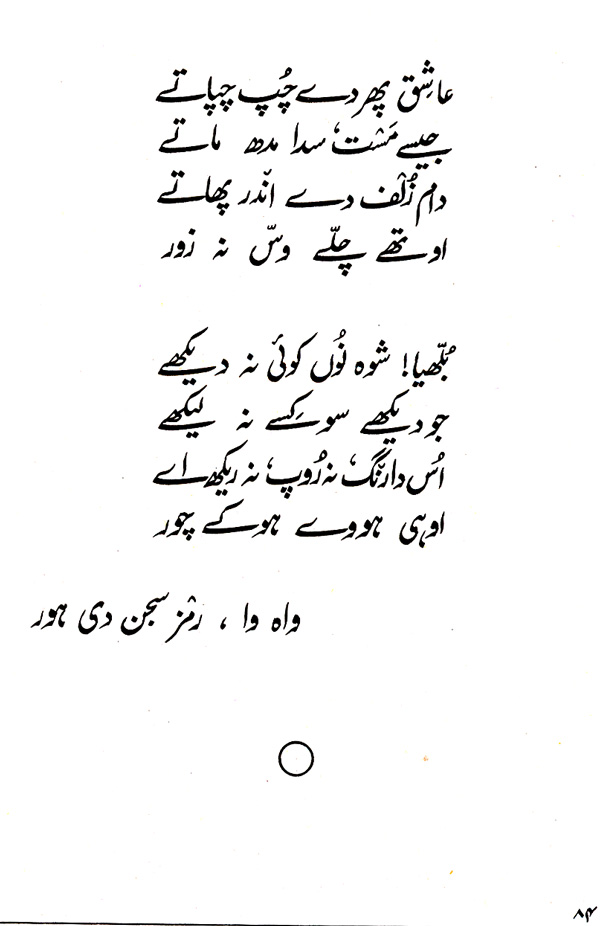 عاشِق پھر دے چُپ چپاتے
جیسے مَست، سدا مدھ ماتے
دام زُلف دے اندر پھاتے
اوتھے چلّے وسّ نہ زور
بُلّھیا! شوہ نُوں کوئی نہ دیکھے
جو دیکھے سو کِسے نہ لیکھے
اُس دا رنگ، نہ رُوپ، نہ ریکھ اے
اوہی ہووے ہوکے چور
واہ وا ، رمز سجن دی ہور
۸۴